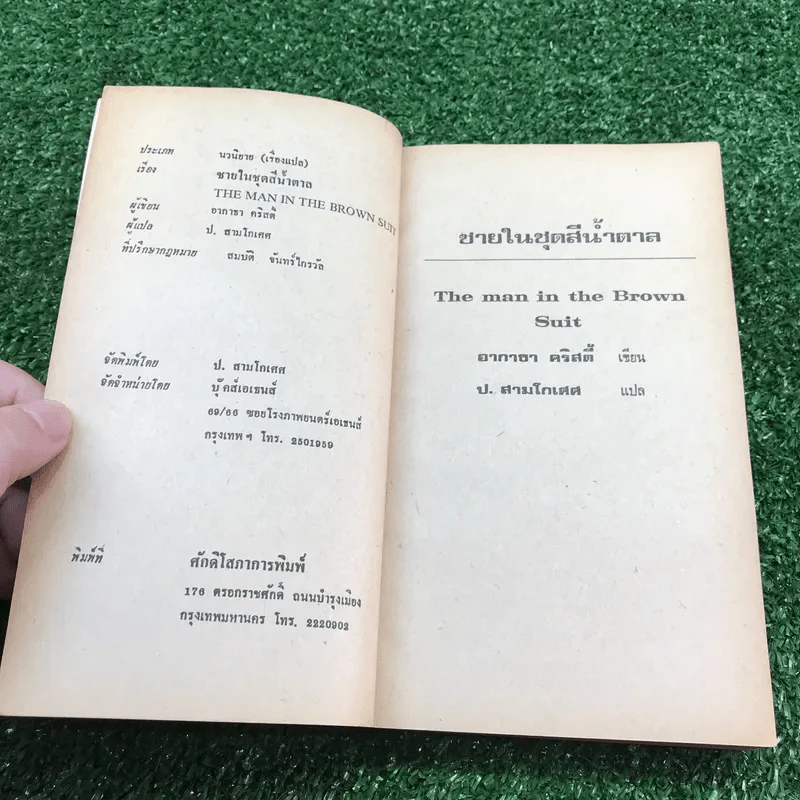 ประเภท นวนิยาย (เรื่องแปล)
เรื่อง ชายในชุดสีน้ำตาล
THE MAN IN THE BROWN SUIT
ผู้เขียน อากาธา คริสตี้
ผู้แปล ป. สามโกเศศ
ที่ปรึกษากฎหมาย สมบัติ จันทร์ไกรวัล
จัดพิมพ์โดย ป. สามโกเศศ
จัดจำหน่ายโดย บุ๊คส์เอเธนส์
69/66 ซอยโรงภาพยนตร์เอเธนส์
กรุงเทพฯ โทร. 2501959
พิมพ์ที่ ศักดิ์โสภาการพิมพ์
176 ตรอกราชศักดิ์ ถนนบำรุงเมือง
กรุงเทพมหานคร โทร. 2220902
ชายในชุดสีน้ำตาล
The man in the Brown
Suit
อากาธา คริสตี้ เขียน
ป. สามโกเศศ แปล